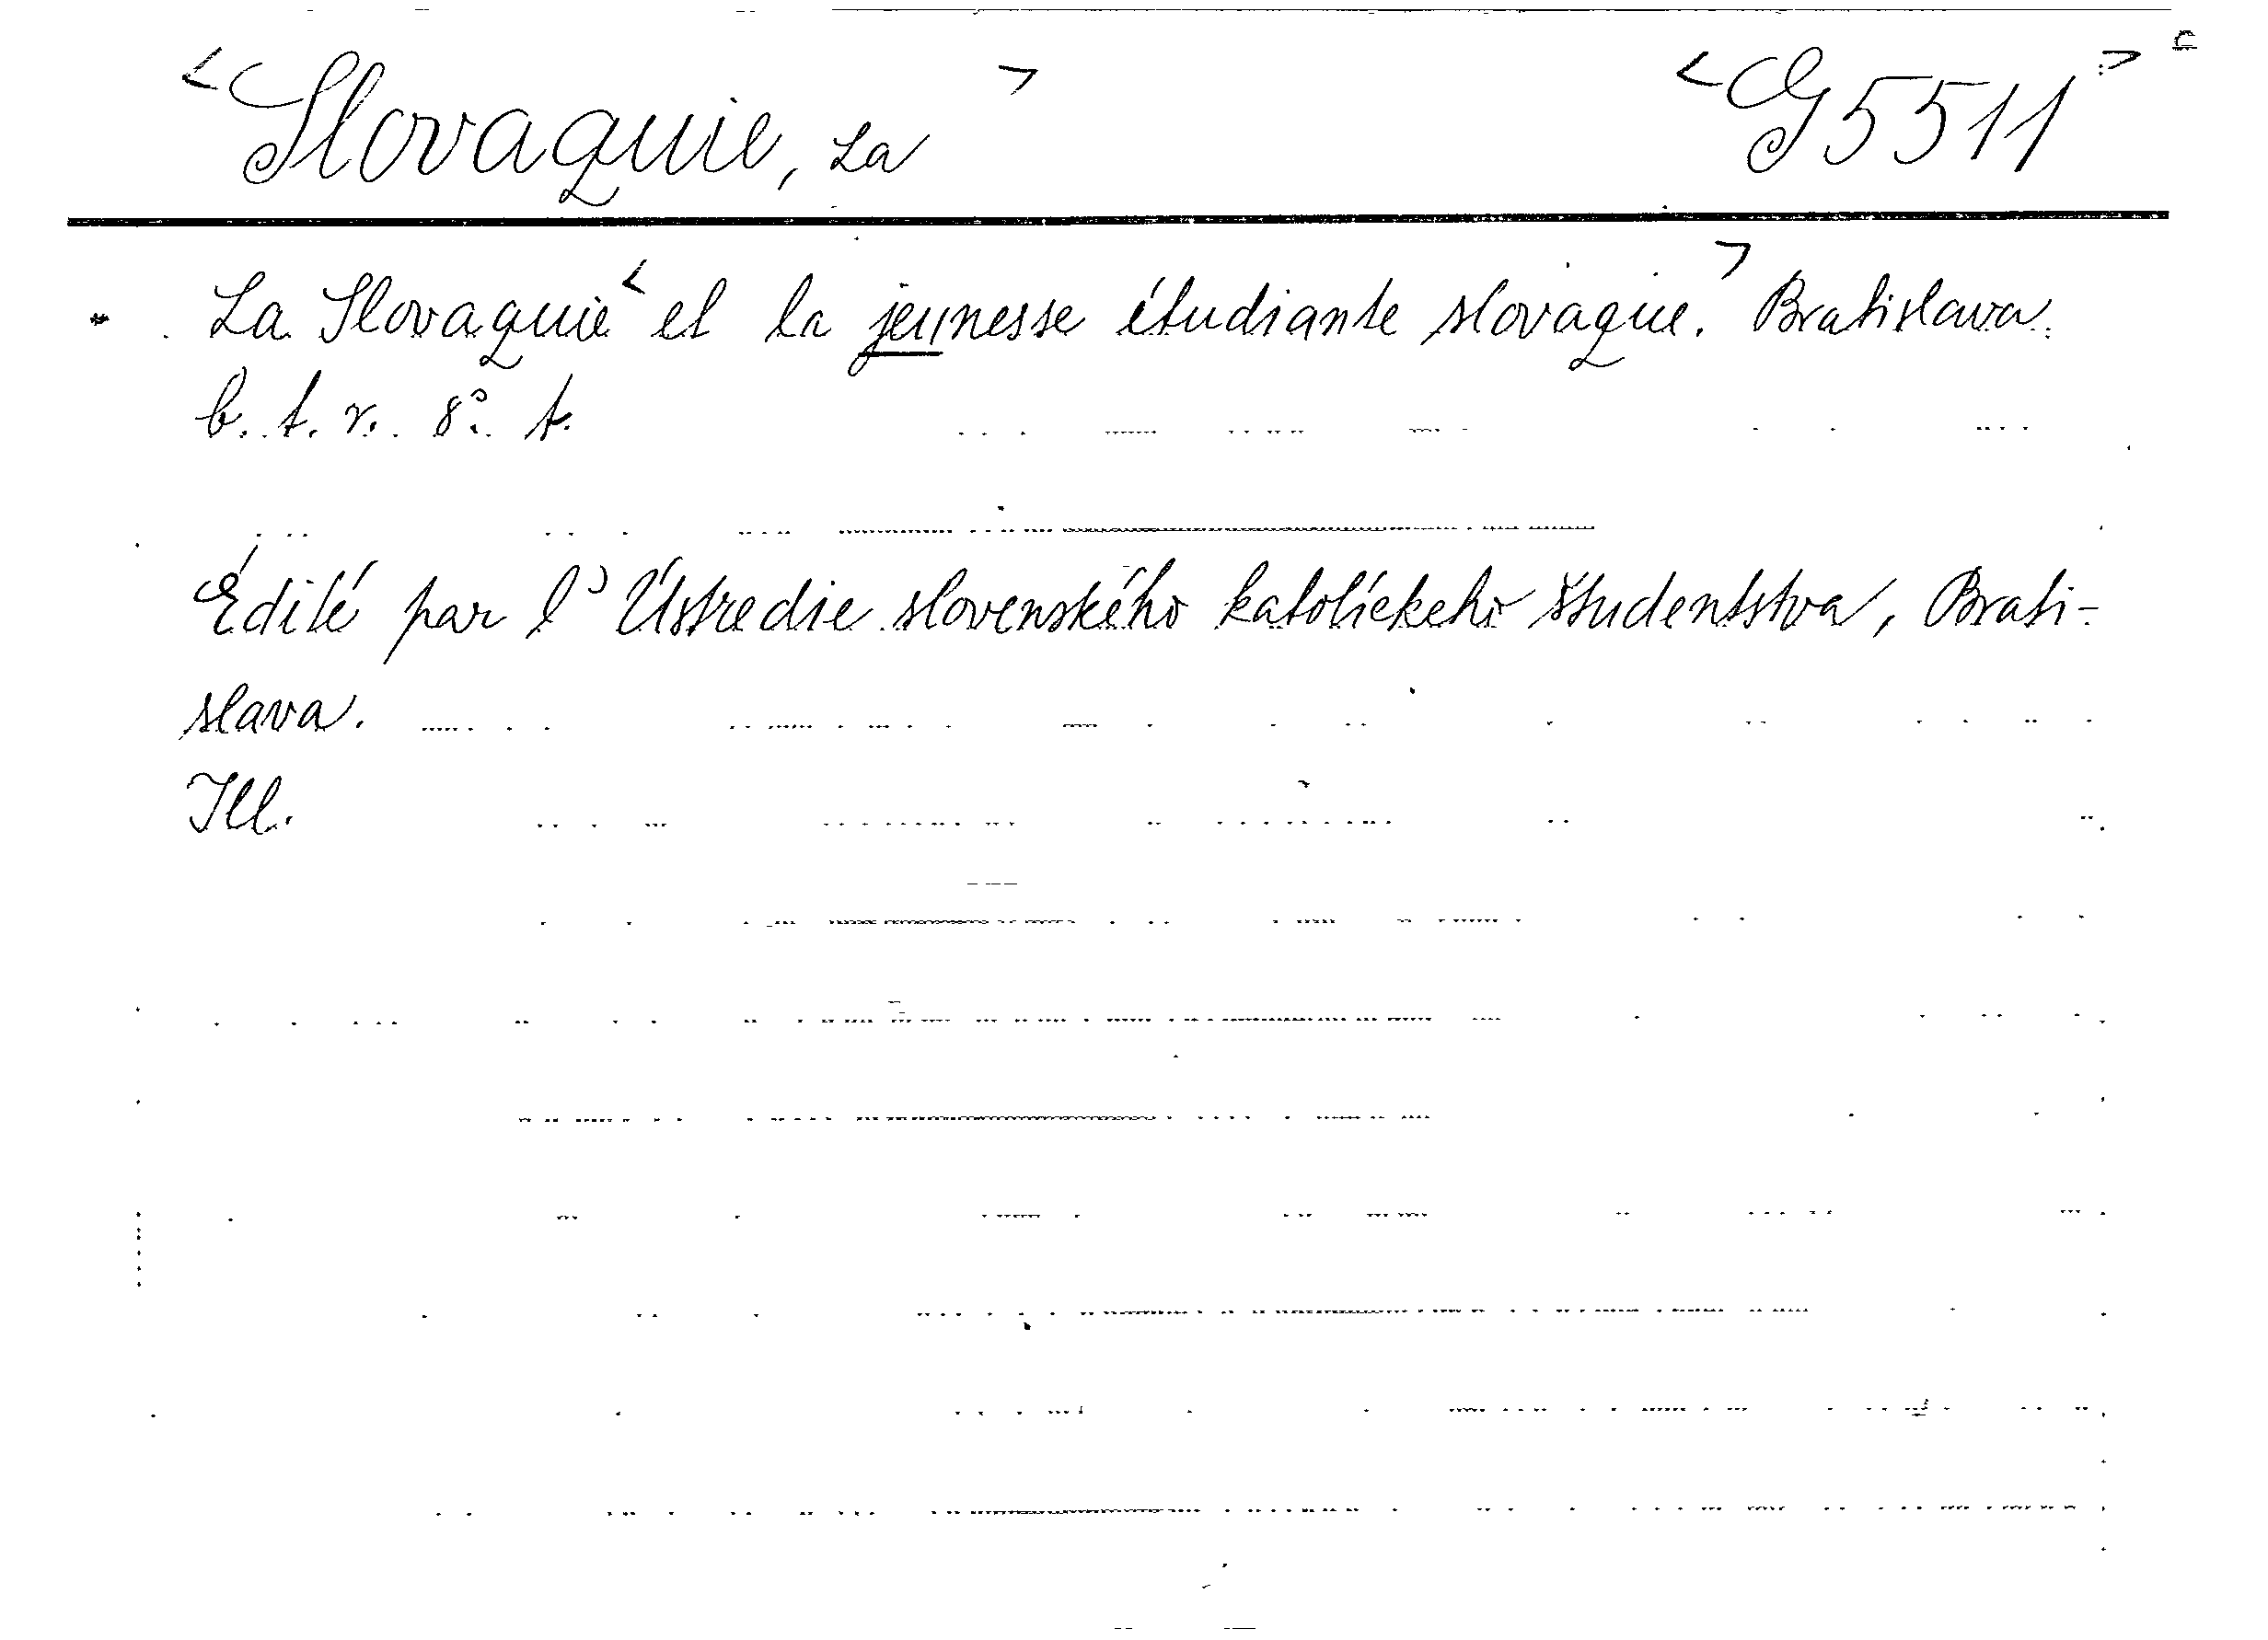 <Slovaquie, La > <G 5511>
La Slovaquie< et la jeunesse étudiante slovaque.> Bratislava
b. t. r. 8°. t.
Édité par l' Ústredie slovenského katolíckeho študentstva, Brati-
slava.
Ill.